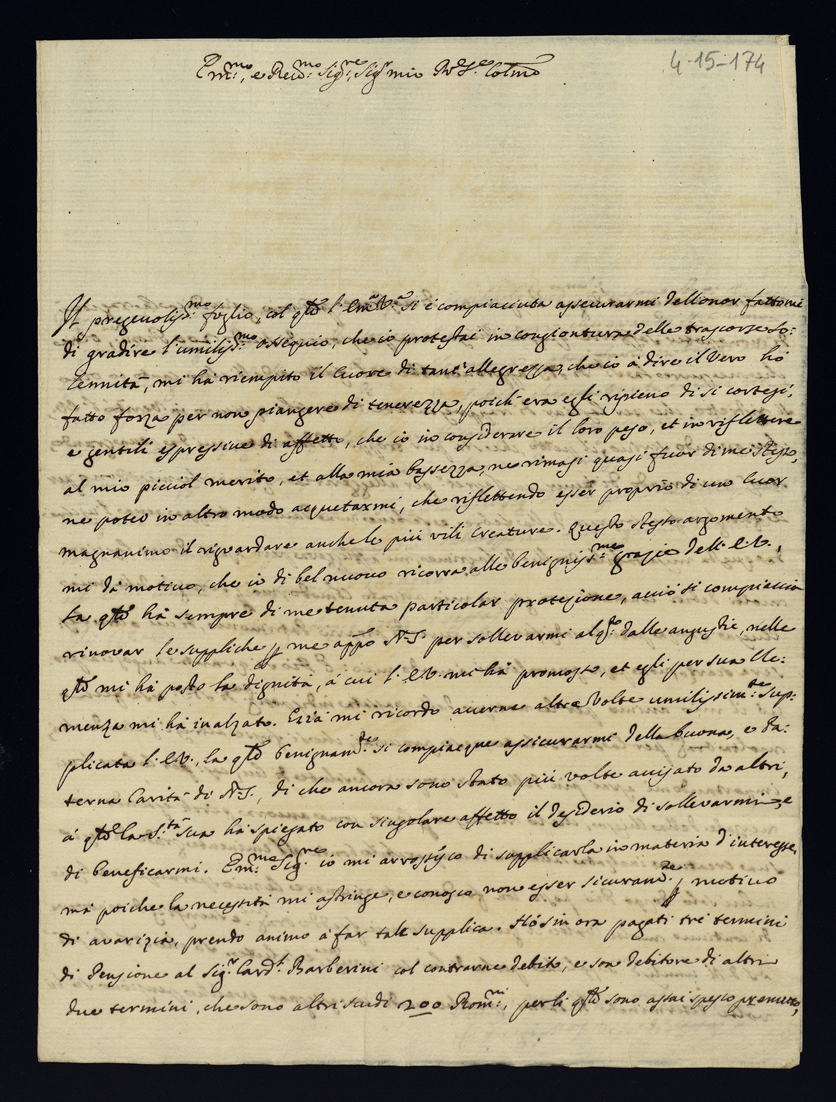 4-15-174
Em.mo, e Reud.mo Sig.re Sig.r mio P̄rōn Col.mo
Il pregeuolis.mo foglio, col q̄le l'Em.a V.a si è compiaciuta assecurarmi dell'onor fattomi
di gradire l'umilis.mo ossequio, che io protestai in congiontura delle trascorse So:
lennità, mi hà riempito il Cuore di tant'allegrezza, che io à dire il vero hò
fatto forza per non piangere di tenerezza, poich'era egli ripieno di sì cortesi,
e gentili espressiue di affetto, che io in considerare il loro peso, et in riflettere
al mio picciol merito, et alla mia bassezza, ne rimasi quasi fuor di me stesso,
ne poteo in altro modo acquetarmi, che riflettendo esser proprio di un Cuor
magnanimo il riguardare anche le più vili Creature. Questo stesso argomento
mi dà motiuo, che io di bel nuouo ricorra alle benignis.me grazie dell'E.V.,
la q̄le hà sempre di me tenuta particolar protezione, acciò si compiaccia
rinouar le suppliche p me app̄o N.S. per solleuarmi al q̄to dalle angustie, nelle
q̄li mi hà posto la dignità, à cui l'E.V. mi hà promosso, et egli per sua Cle:
menza mi hà inalzato. Essa mi ricordo auerne altre volte umilissim.te sup:
plicata l'E.V., la q̄le benignam.te si compiacque assicurarmi della buona, e pa:
terna Carità di N.S., di che ancora sono stato più volte auisato da altri,
à q̄li la S.tà Sua hà spiegato con singolare affetto il desiderio di solleuarmi, e
di beneficarmi. Em.mo Sig.re io mi arrossisco di supplicarla in materia d'interesse,
mà poiche la necessità mi astringe, e conosco non esser sicuram.te p motiuo
di auarizia, prendo animo à far tale supplica. Hò sin ora pagati trè termini
di Pensione al Sig.r Card.l Barberini col contrarne debito, e son debitore di altri
due termini, che sono altri scudi 200 Rom.ni, per li q̄li sono assai spesso premuto,